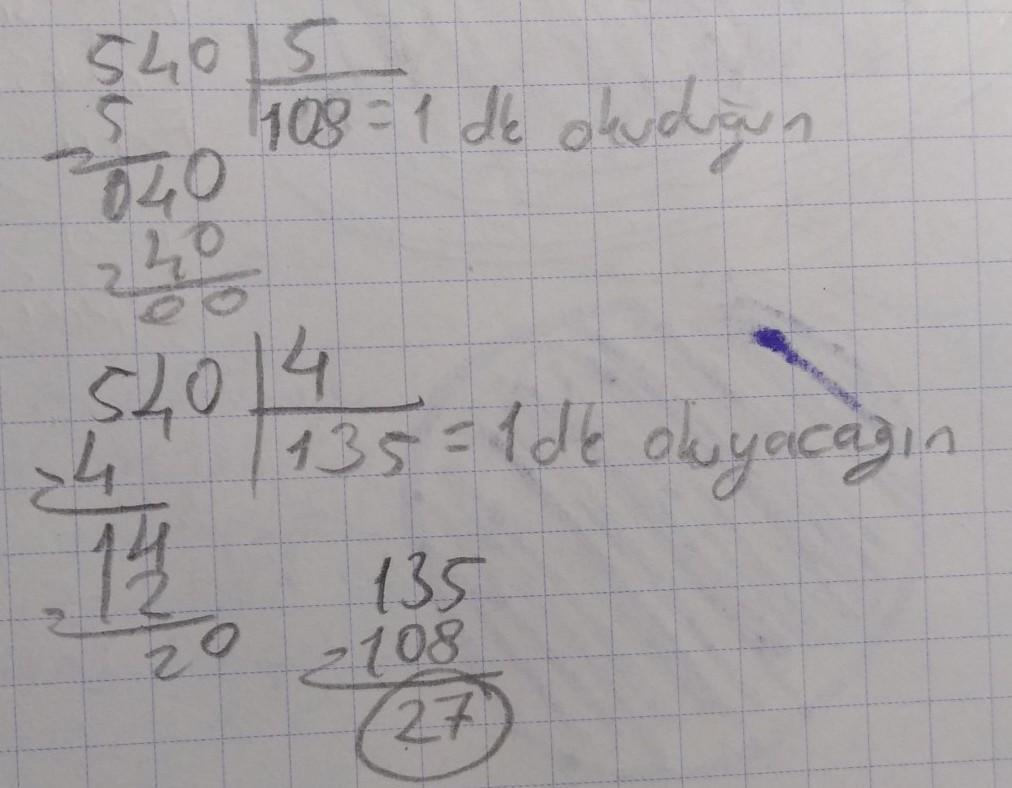 540 | 5
- 5 108 = 1 dk okuduğun
040
- 40
00
540 | 4
- 4 135 = 1 dk okuyacağın
14
- 12
20
135
- 108
27